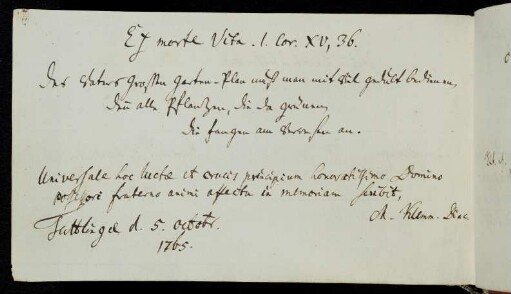 Ex morte Vita. 1. Cor. XV, 36.
Des Vaters großen Garten-Plan muß man mit viel gedult bedienen,
denn alle Pflantzen, die da grünen,
die fangen am verwesen an.
Universale hoc luctae et crucis principium honoratissimo Domino
possessori fraterno animi affectu in memoriam scribit,
Tuttlingae d. 5. octobr. M. Klemm. Diac.
1765.